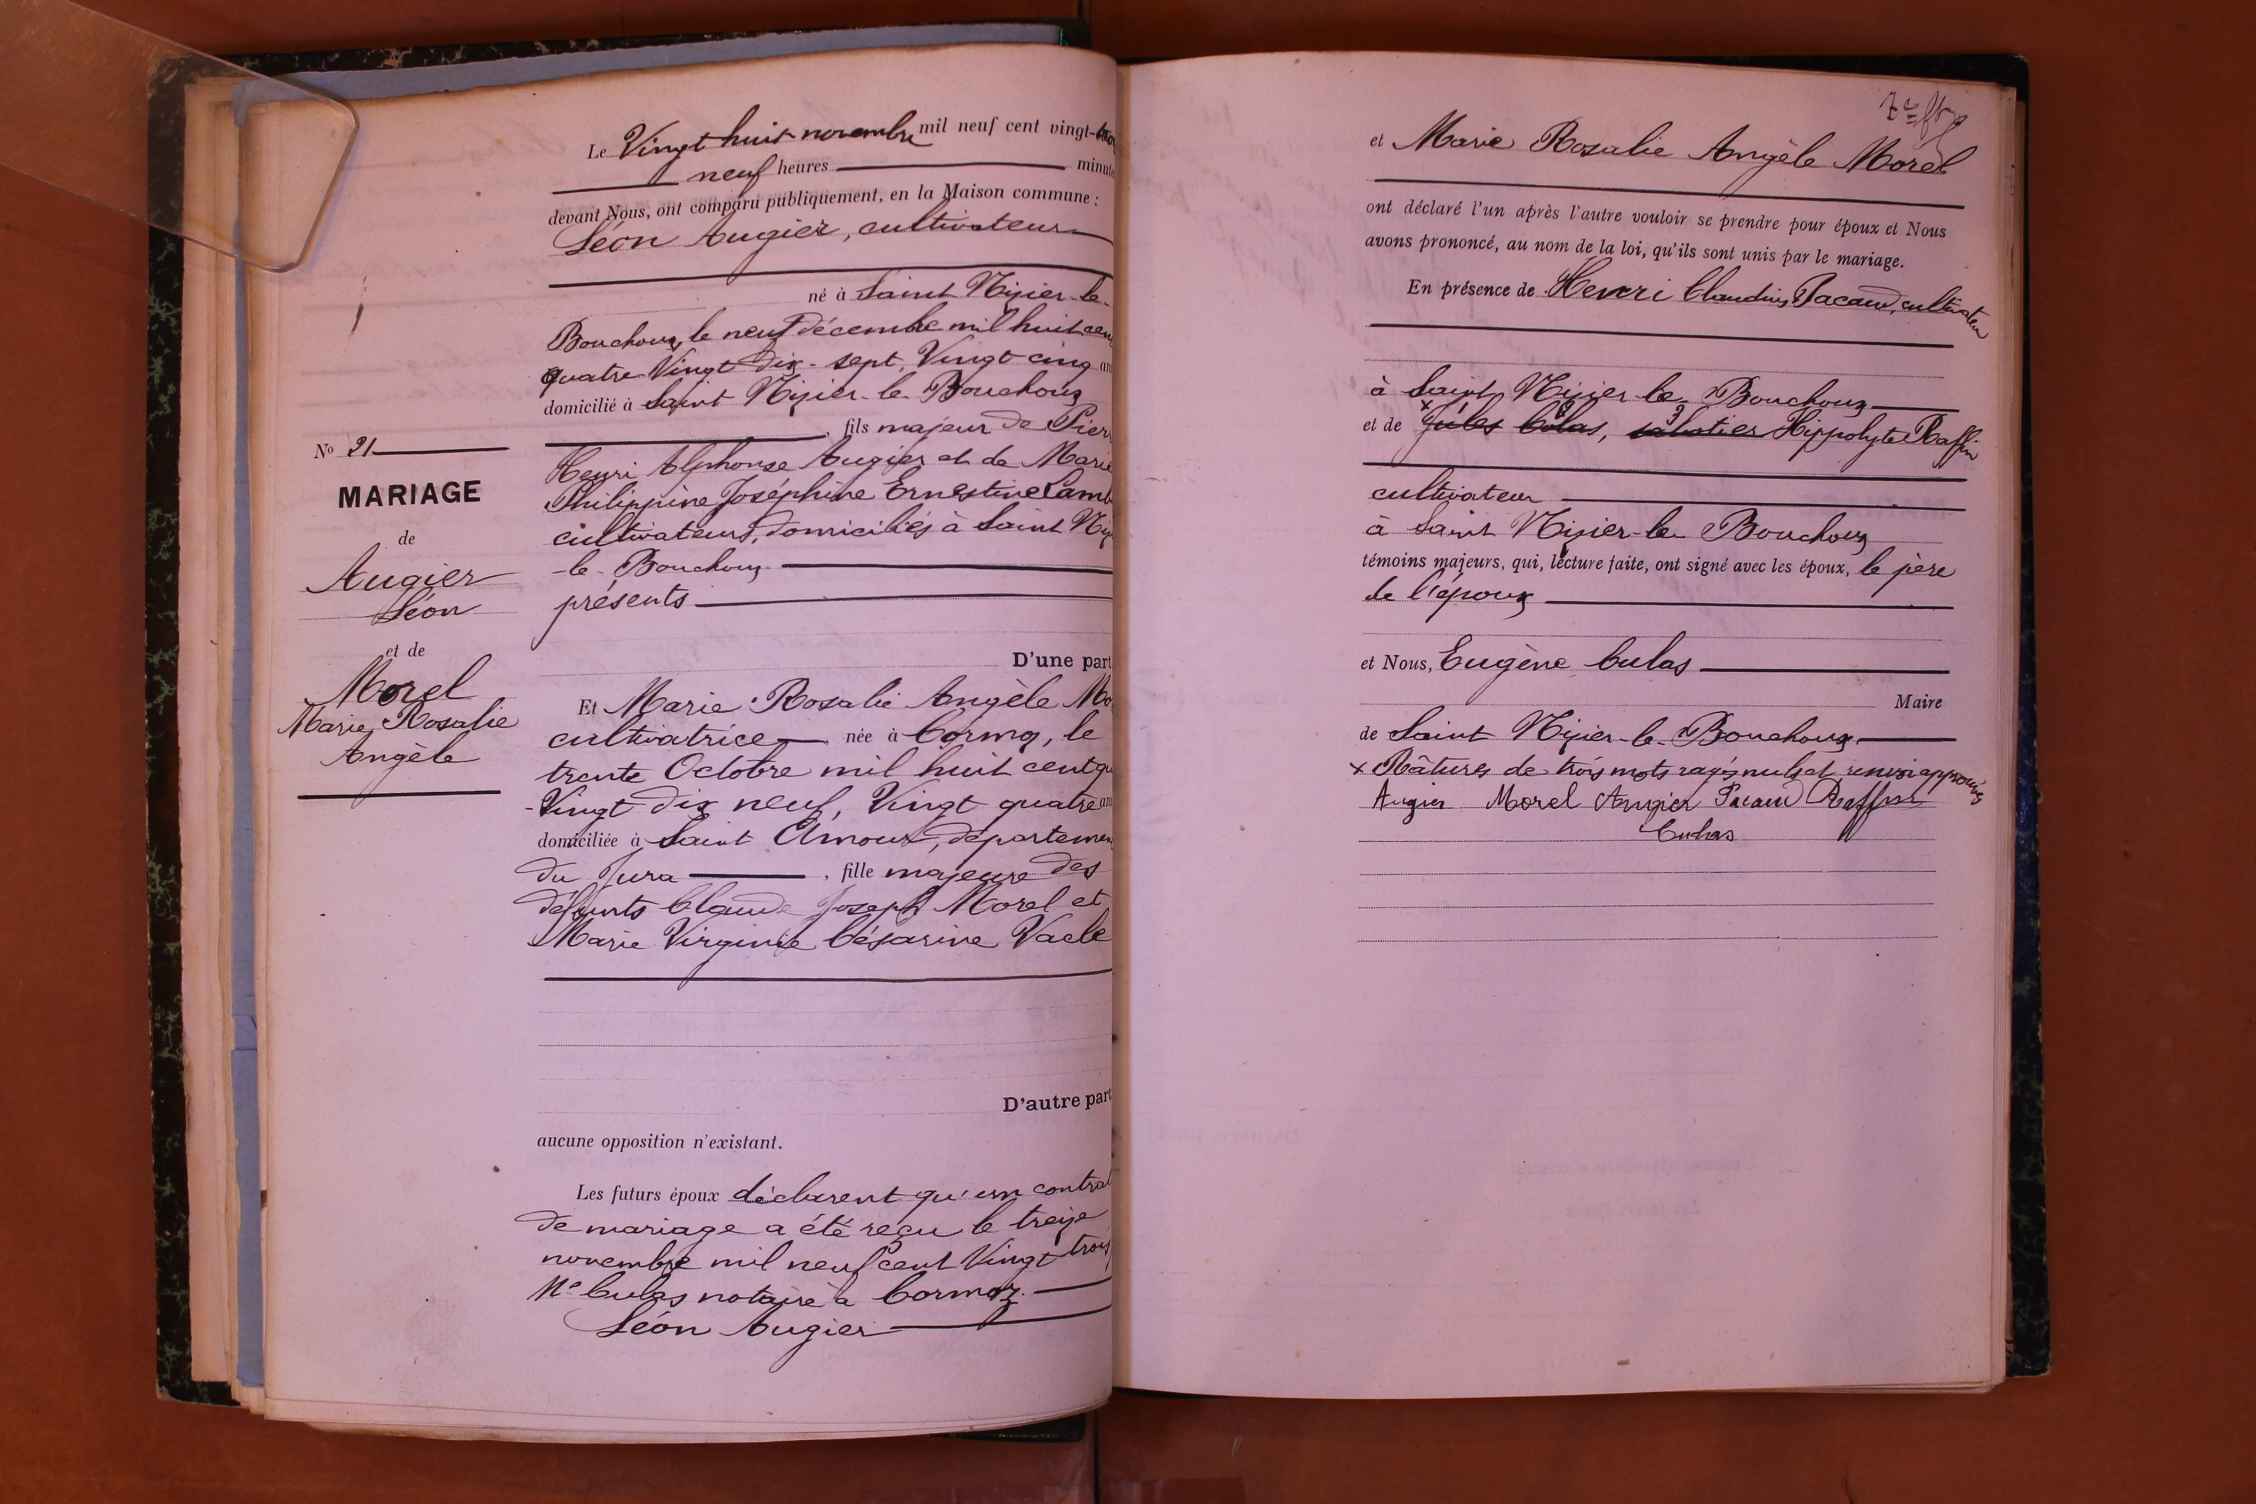 Le Vingt huit novembre mil neuf cent vingt-trois
neuf heures minute
devant Nous, ont comparu publiquement, en la Maison commune :
Léon Augier, cultivateur
né à Saint Nizier-le-
Bouchoux, le neuf décembre mil huit cent
quatre Vingt Dix-sept, Vingt cinq an
domicilié à Saint Nizier-le-Bouchoux
, fils majeur de Pierr
Henri Alphonse Augier et de Marie
Philippine Joséphine Ernestine Camb
cultivateurs, domiciliés à Saint Niz
-le-Bouchoux
présents
D'une part
Et Marie Rosalie Angèle Mo
cultivatrice née à Cormoz, le
trente Octobre mil huit cent qu
-Vingt dix neuf, Vingt quatre an
domiciliée à Saint Amour, départemen
du Jura , fille majeure des
défunts Claude Joseph Morel et
Marie Virginie Césarine Vacle
D'autre part
aucune opposition n'existant.
Les futurs époux déclarent qu'un contrat
de mariage a été reçu le treize
novembre mil neuf cent Vingt trois
Me Culas notaire à Cormoz.
Léon Augier
No 21
MARIAGE
de
Augier
Léon
et de
Morel
Marie Rosalie
Angèle
et Marie Rosalie Angèle Morel
ont déclaré l'un après l'autre vouloir se prendre pour époux et Nous
avons prononcé, au nom de la loi, qu'ils sont unis par le mariage.
En présence de Henri Claudius Pacaud, cultivateur
à Saint Nizier-le-Bouchoux
et de Jules Culas, sabotier Hippolyte Raffin
cultivateur
à Saint Nizier-le-Bouchoux
témoins majeurs, qui, lecture faite, ont signé avec les époux, le père
de l'époux
et Nous, Eugène Culas
Maire
de Saint Nizier-le-Bouchoux
x Râtures de trois mots rayés nuls et renvoi approuvés
Augier Morel Augier Pacaud Raffin
Culas